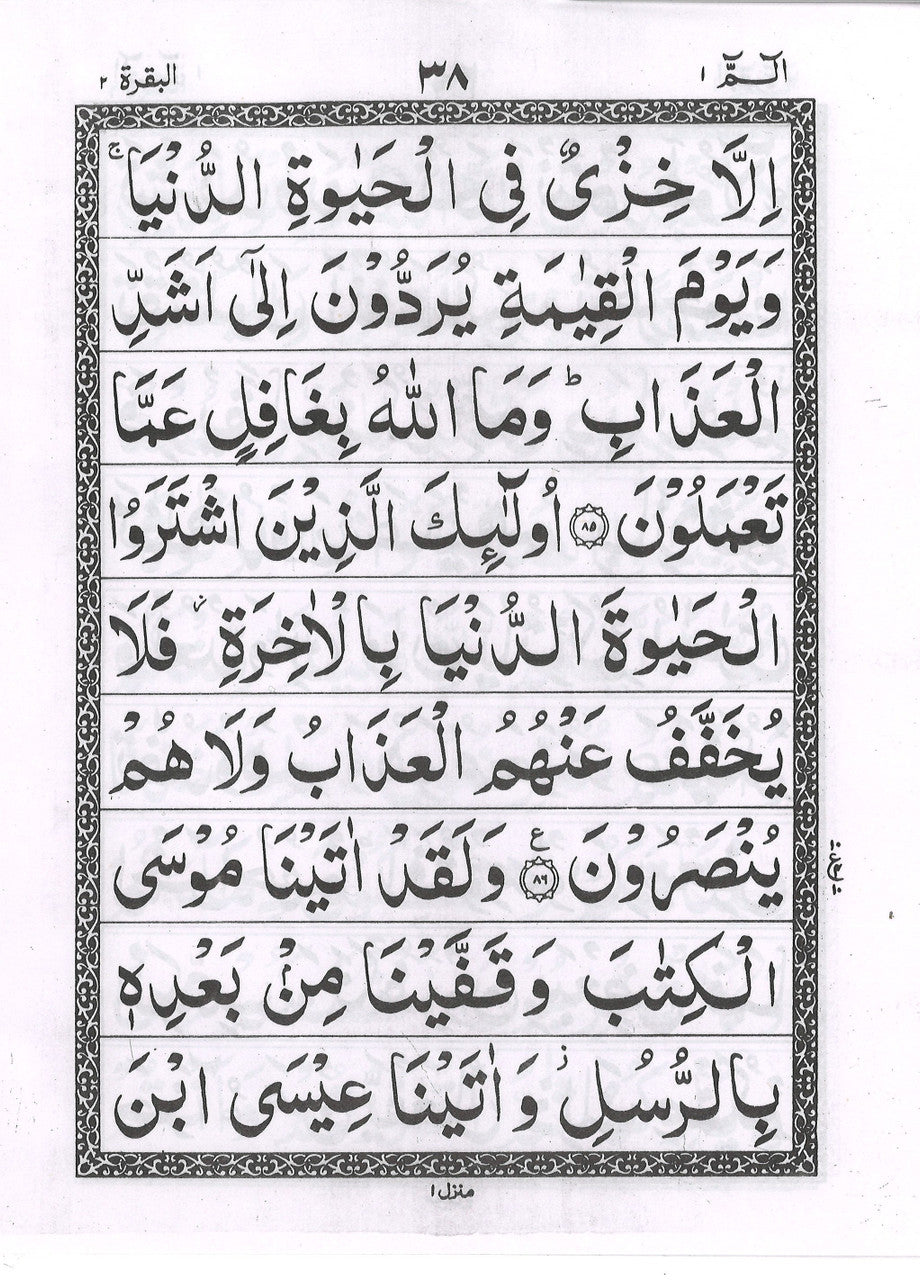 الٓـمّٓ ١ ٣٨ البقرة ٢
اِلَّا خِزْیٌ فِی الْحَیٰوةِ الدُّنْیَا ۚ
وَیَوْمَ الْقِیٰمَةِ یُرَدُّوْنَ اِلٰۤی اَشَدِّ
الْعَذَابِ ؕ وَمَا اللّٰهُ بِغَافِلٍ عَمَّا
تَعْمَلُوْنَ ﴿۸۵﴾ اُولٰٓئِكَ الَّذِیْنَ اشْتَرَوُا
الْحَیٰوةَ الدُّنْیَا بِالْاٰخِرَةِ ؗ فَلَا
یُخَفَّفُ عَنْهُمُ الْعَذَابُ وَلَا هُمْ
یُنْصَرُوْنَ ﴿۸۶﴾ ع وَلَقَدْ اٰتَیْنَا مُوْسَی
الْكِتٰبَ وَقَفَّیْنَا مِنْۢ بَعْدِهٖ
بِالرُّسُلِ ؗ وَاٰتَیْنَا عِیْسَی ابْنَ
منزل ١